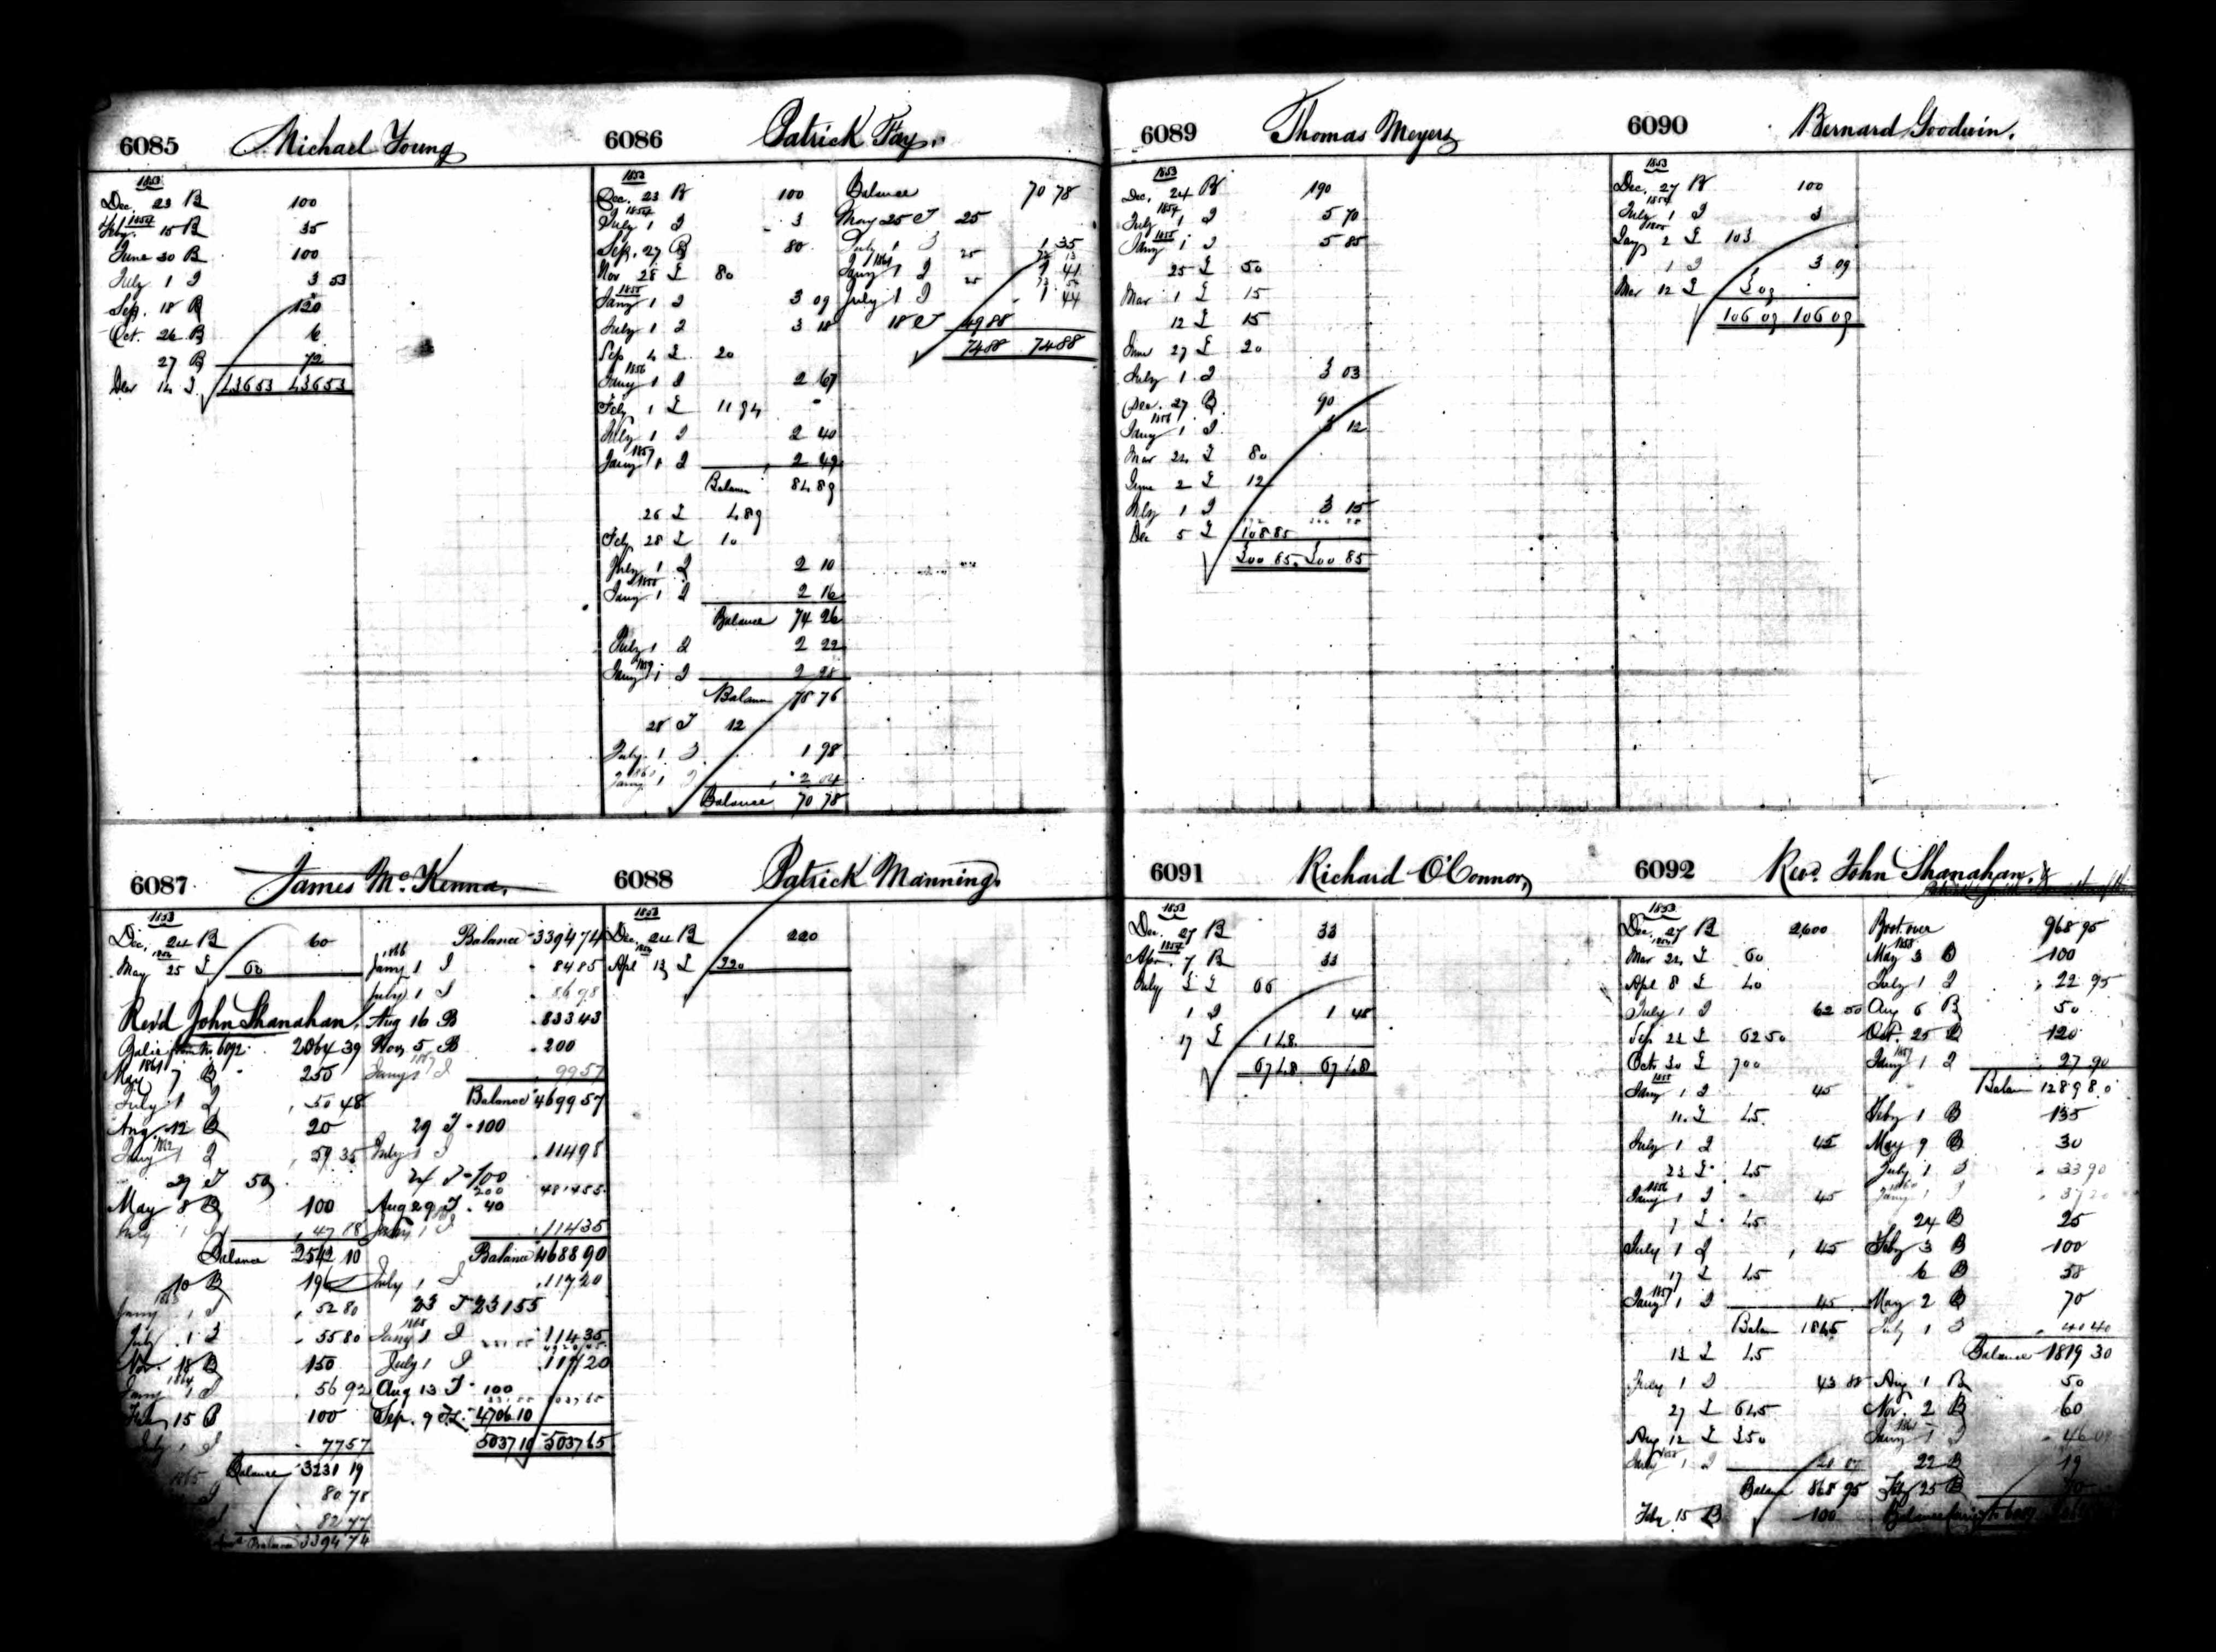 6085 Michael Young
1853
Dec. 23 B 100
Feby. 1854 15 B 35
June 30 B 100
July 1 I 3 53
Sep. 18 B 120
Oct. 26 B 6
27 B 72
Dec 14 I 43653 43653
6086 Patrick Fay.
1853
Dec. 23 B 100
1854
July 1 I 3
Sep. 27 B 80
Nov 28 £ 80
1855
Jany 1 I 3 09
July 1 I 3 18
Sep 4 £ 20
1856
Jany 1 I 2 67
Feby 1 £ 11 94
July 1 I 2 40
1857
Jany 1 I 2 49
Balance 84 89
26 £ 4 89
Feby 28 £ 10
July 1 I 2 10
1858
Jany 1 I 2 16
Balance 74 26
July 1 I 2 22
1859
Jany 1 I 2 28
Balance 78 76
28 T 12
July 1 I 1 98
Jany 1 I 2 04
Balance 70 78
Balance 70 78
May 25 T 25
July 1 I 1 35
1861
Jany 1 I 1 41
July 1 I 1 44
18 T 49 88
7488 7488
6087 James McKenna.
1853
Dec. 24 B 60
May 25 £ 60
Rev'd John Shanahan.
Balce from No. 6092 2064 39
1861
May 7 B 250
July 1 I 50 48
Aug. 12 B 20
1862
Jany 1 I 59 35
29 T 50
May 8 B 100
July 1 I 47 18
Balance 2542 10
10 B 196
Jany 1 I 52 80
July 1 I 55 80
Nov. 18 B 150
1864
Jany 1 I 56 92
Feb 15 B 100
July 1 I 77 57
Balance 3231 19
1865
I 80 78
82 77
Balance 3394 74
Balance 3394 74
1866
Jany 1 I 84 85
July 1 I 86 98
Aug 16 B 833 43
Nov 5 B 200
1867
Jany 1 I 99 57
Balance 4699 57
29 T 100
July 1 I 114 98
24 T 100
Aug 29 T 40
Jany 1 I 114 35
Balance 4688 90
July 1 I 117 20
23 T 231 55
Jany 1 I 114 35
July 1 I 117 20
Aug 13 T 100
Sep. 9 T 4706 10
503710 503765
6088 Patrick Manning.
1853
Dec. 24 B 220
Apl 13 £ 220
6089 Thomas Meyers
1853
Dec. 24 B 190
1854
July 1 I 5 70
1855
Jany 1 I 5 85
25 £ 50
Mar 1 £ 15
12 £ 15
June 27 £ 20
July 1 I 3 03
Dec. 27 B 90
1856
Jany 1 I 3 12
Mar 24 £ 80
June 2 £ 12
July 1 I 3 15
Dec 5 £ 108 85
300 85 300 85
6090 Bernard Goodwin.
1853
Dec. 27 B 100
1854
July 1 I 3
1855
Jany 2 £ 103
1 I 3 09
Mar 12 £ 3 09
106 09 106 09
6091 Richard O'Connor,
1853
Dec. 27 B 33
1854
Apr. 7 B 33
July £ 66
1 I 1 48
17 £ 1 48
67 48 67 48
6092 Revd. John Shanahan. &
1853
Dec. 27 B 2,600
1854
Mar 24 £ 60
Apl 8 £ 40
July 1 I 62 50
Sep 23 £ 62 50
Oct 30 £ 700
1855
Jany 1 I 45
11 £ 45
July 1 I 45
23 £ 45
1856
Jany 1 I 45
£ 45
July 1 I 45
17 £ 45
1857
Jany 1 I 45
Balance 1845
13 £ 45
July 1 I 43 88
27 £ 645
Aug 12 £ 350
1858
Jany 1 I
Balance 868 95
Feby 15 B 100
Brot. over 968 95
1858
May 3 B 100
July 1 I 22 95
Aug 6 B 50
Oct. 25 B 120
1859
Jany 1 I 27 90
Balance 1289 80
Feby 1 B 135
May 9 B 30
July 1 I 33 90
1860
Jany 1 I 37 20
24 B 25
Feby 3 B 100
6 B 58
May 2 B 70
July 1 I 40 40
Balance 1819 30
Aug 1 B 50
Nov. 2 B 60
1861
Jany 1 I
22 B 19
Feby 25 B 70
Balance